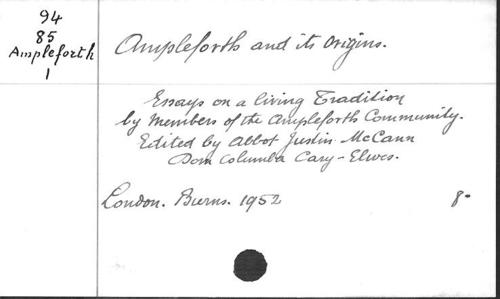 94
85
Ampleforth
1
Ampleforth and its Origins.
Essays on a living Tradition
by Members of the Ampleforth Community.
Edited by Abbot Justin McCann
Dom Columba Cary-Elwes.
London. Burns. 1952 8°